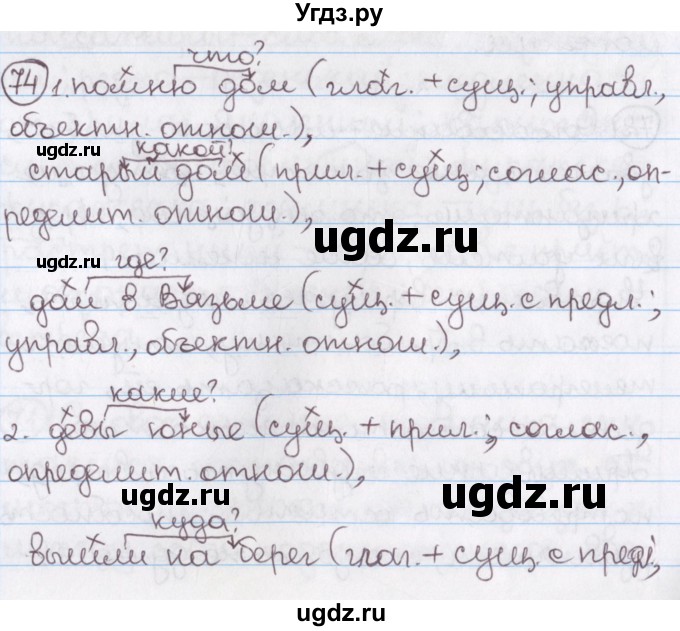 Угдз.ру
что?
74 1. помню дом (глаг. + сущ.; управл.,
объектн. отнош.),
ugdz.ru какой? ugdz.ru
старый дом (прил. + сущ.; соглас., оп-
ределит. отнош.),
ugdz.ru
ugdz.ru где?
дом в Вязьме (сущ. + сущ. с предл.;
управл., объектн. отнош.),
ugdz.ru
какие?
2. девы юные (сущ. + прил.; соглас.,
определит. отнош.),
ugdz.ru ugdz.ru
куда?
вышли на берег (глаг. + сущ. с предл.;
ugdz.ru